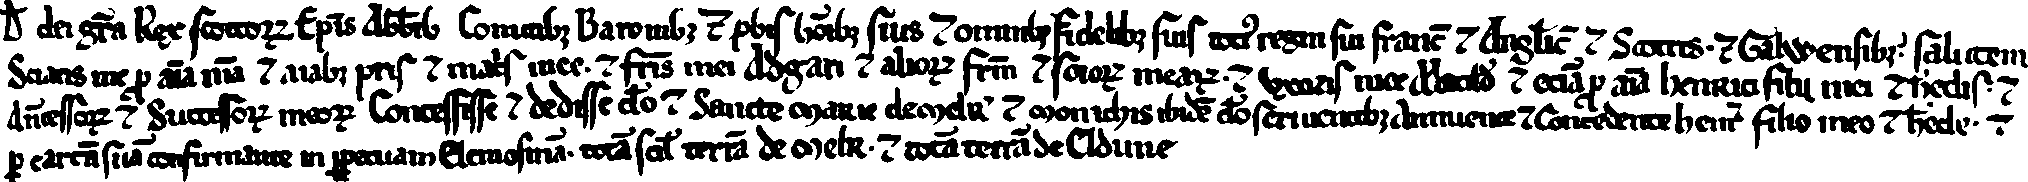 D dei gr̄a Rex scottoꝝ Ep̄is Abb̄ib Comitibꝫ Baronibꝫ ⁊ ꝓbis hōibꝫ suis ⁊ omnibꝫ Fidelibꝫ suis toti᷒ regni sui franc̄ ⁊ Anglic̄ ⁊ Scottis ⁊ Galwensibꝫ. salutem
Sciatis me ꝓ aīa mēa ⁊ aīabꝫ pris ⁊ mat̄s mee ⁊ fr̄is mei Ædgari ⁊ alioꝝ fr̄m ⁊ soroꝝ meaꝝ. ⁊ uxoris mee Matild̄ ⁊ eciā ꝓ aīa henrici filij mei ⁊ h̄edis. ⁊
Ān̄cessoꝝ ⁊ Successoꝝ meoꝝ Concessisse ⁊ dedisse dō ⁊ Sancte marie de melr̄ ⁊ monichis ibidē dō seruientibꝫ Annuente ⁊ Concedente henr̄ filio meo ⁊ h̄ede. ⁊
ꝑ cartā suā confirmante in ꝑpetuam Elemosinā. totā scil̄ terrā de melr̄. ⁊ totā terrā de Eldune